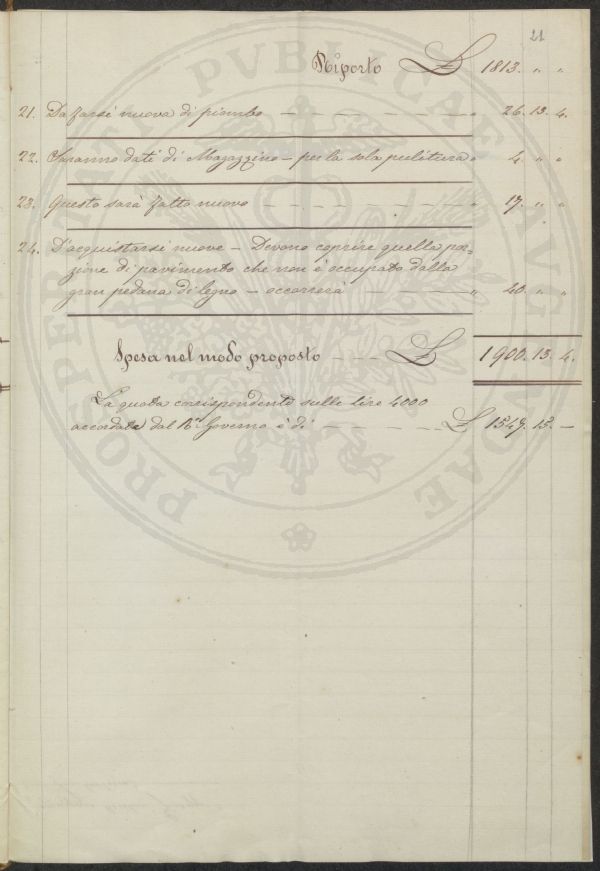 21
Riporto £ 1813. " "
21. Da farsi nuova di piombo — — — — — — " 26. 13. 4.
22. Saranno dati di Magazzino – per la sola pulitura " 4. " "
23. Questo sarà fatto nuovo — — — — — — " 17. " "
24. D'acquistarsi nuove – Devono coprire quella por=
zione di pavimento che non è occupato dalla
gran pedana di legno – occorrerà — — — " 40. " "
Spesa nel modo proposto — — — £ 1900. 13. 4.
La quota corrispondente sulle lire 4000
accordate dal R. Governo è di — — — — £ 1547. 15. —
PROSPERITATI PVBLICAE AVGENDAE